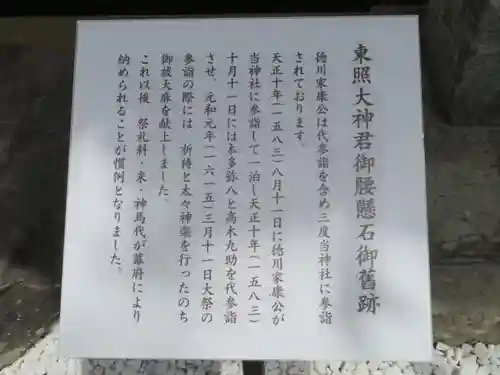 東照大神君御腰懸石御舊跡
徳川家康公は代参詣を含め三度当神社に参詣
されております。
天正十年(一五八三)八月十一日に徳川家康公が
当神社に参詣して一泊し天正十年(一五八三)
十月十一日には本多弥八と高木九助を代参詣
させ、元和元年(一六一五)三月十一日大祭の
参詣の際には 祈祷と太々神楽を行ったのち
御祓大麻を献上しました。
これ以後 祭礼料・米・神馬代が幕府により
納められることが慣例となりました。